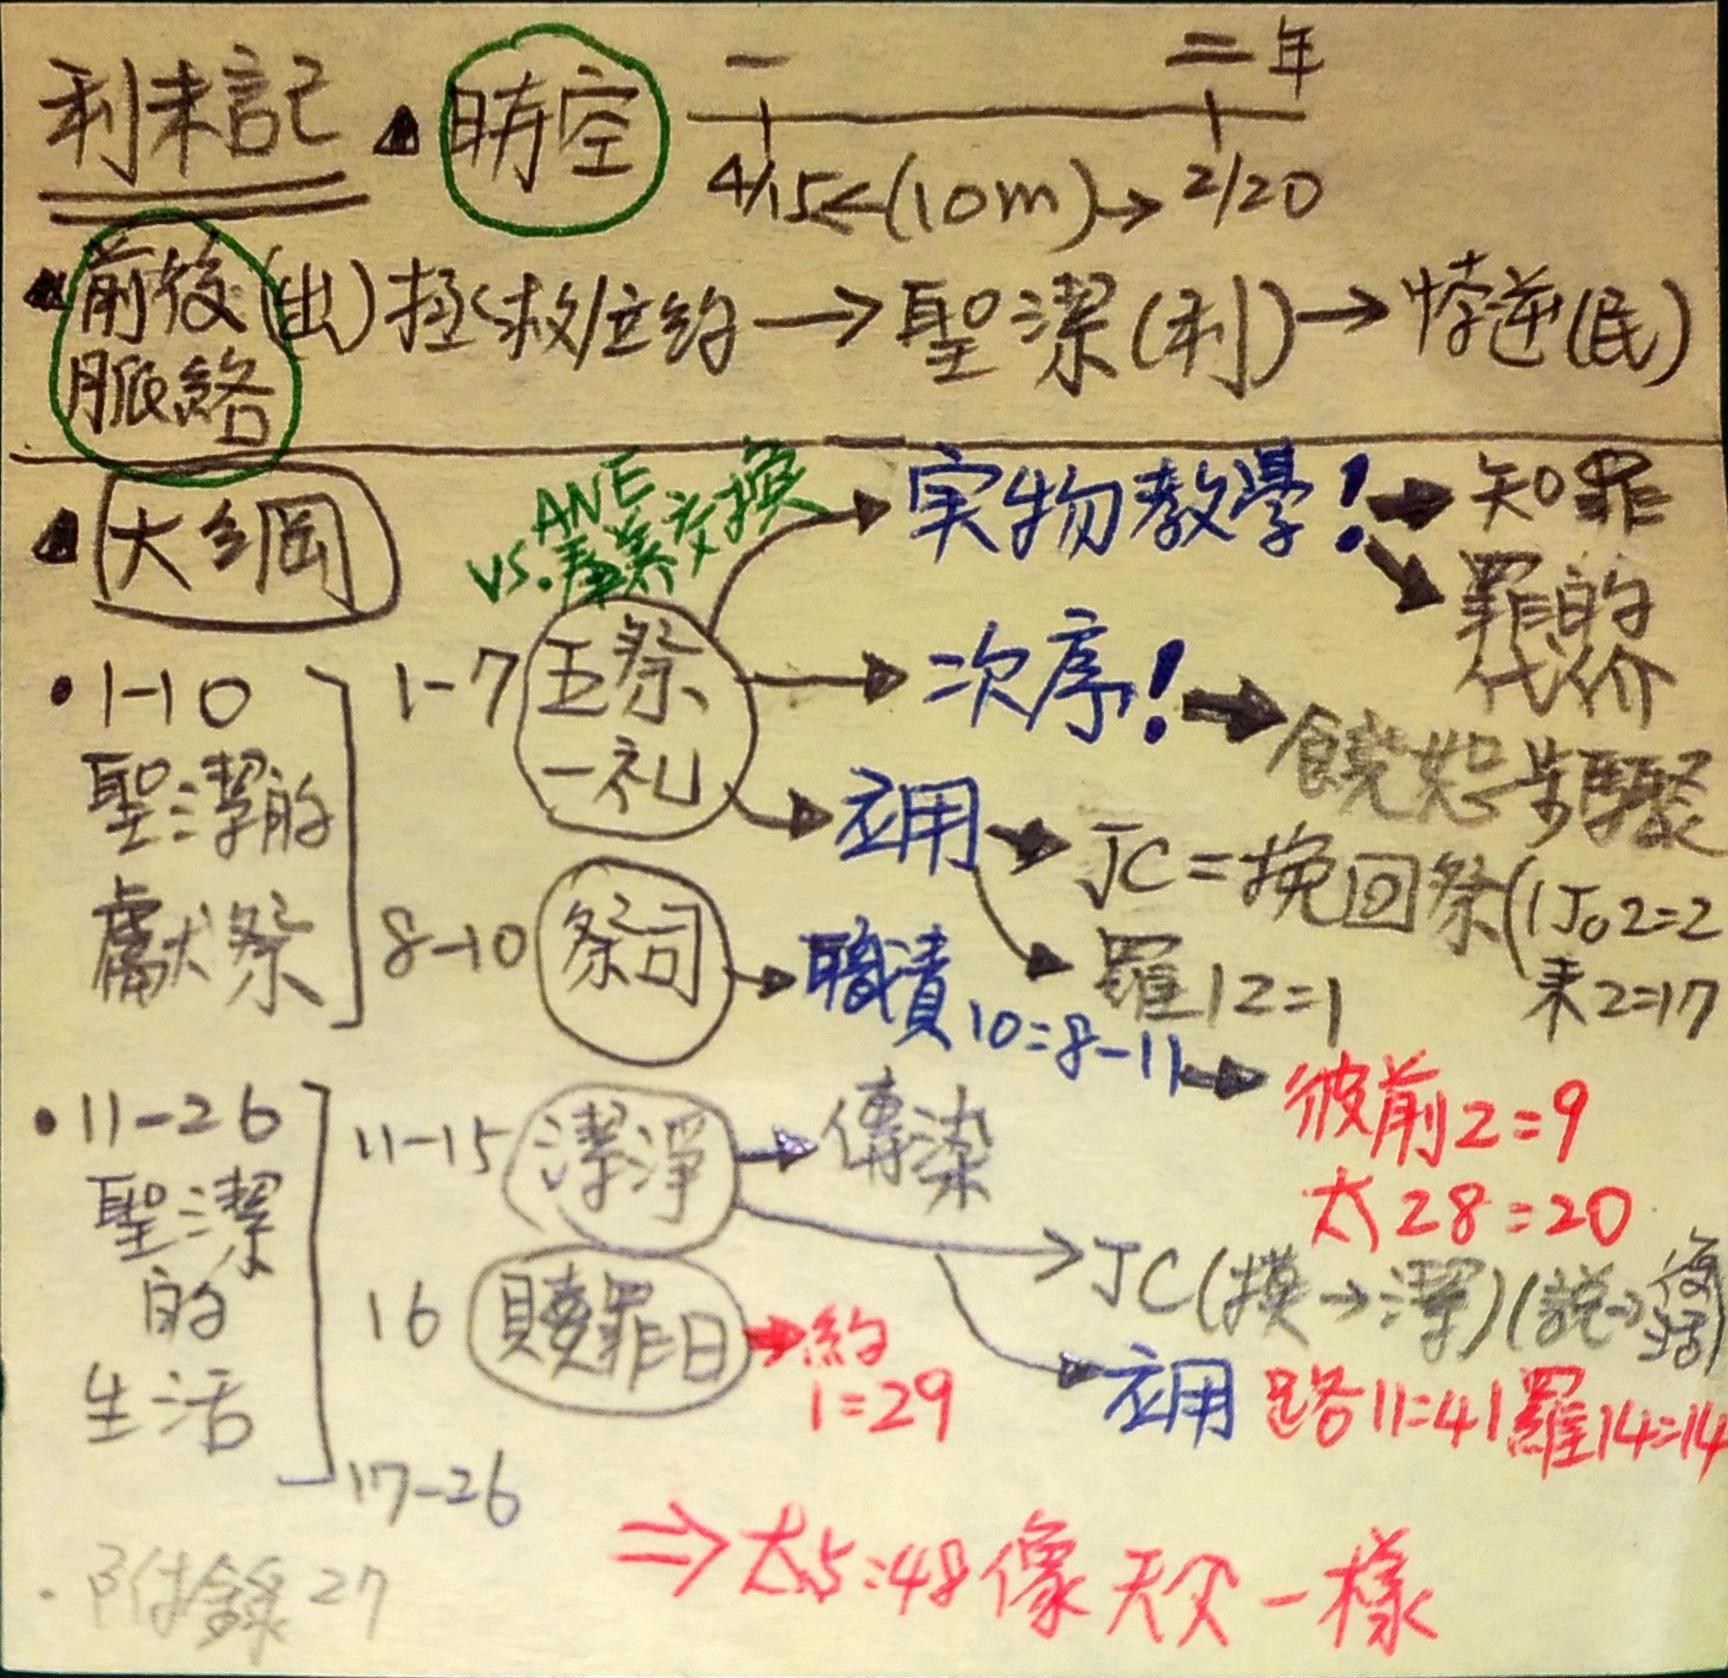 利未記 時空 一 二年
4/15 ←(10m)→ 2/20
前後 (出)拯救/立約 → 聖潔(利) → 悖逆(民)
脈絡
大綱
ANE
vs. 交換
実物教學! → 知罪
罪的
代价
1-10
聖潔的
獻祭
1-7 五祭
一礼
次序! → 饒恕步驟
应用 → JC=挽回祭(1Jo2=2
来2=17
羅12=1
8-10 祭司 → 職責10=8-11 → 彼前2=9
太28=20
11-26
聖潔
的
生活
11-15 潔淨 → 傳染
JC(摸→潔)(説→復活)
应用 路11=41 羅14=14
16 贖罪日 → 約
1=29
17-26
⇒ 太5:48 像天父一樣
附錄27